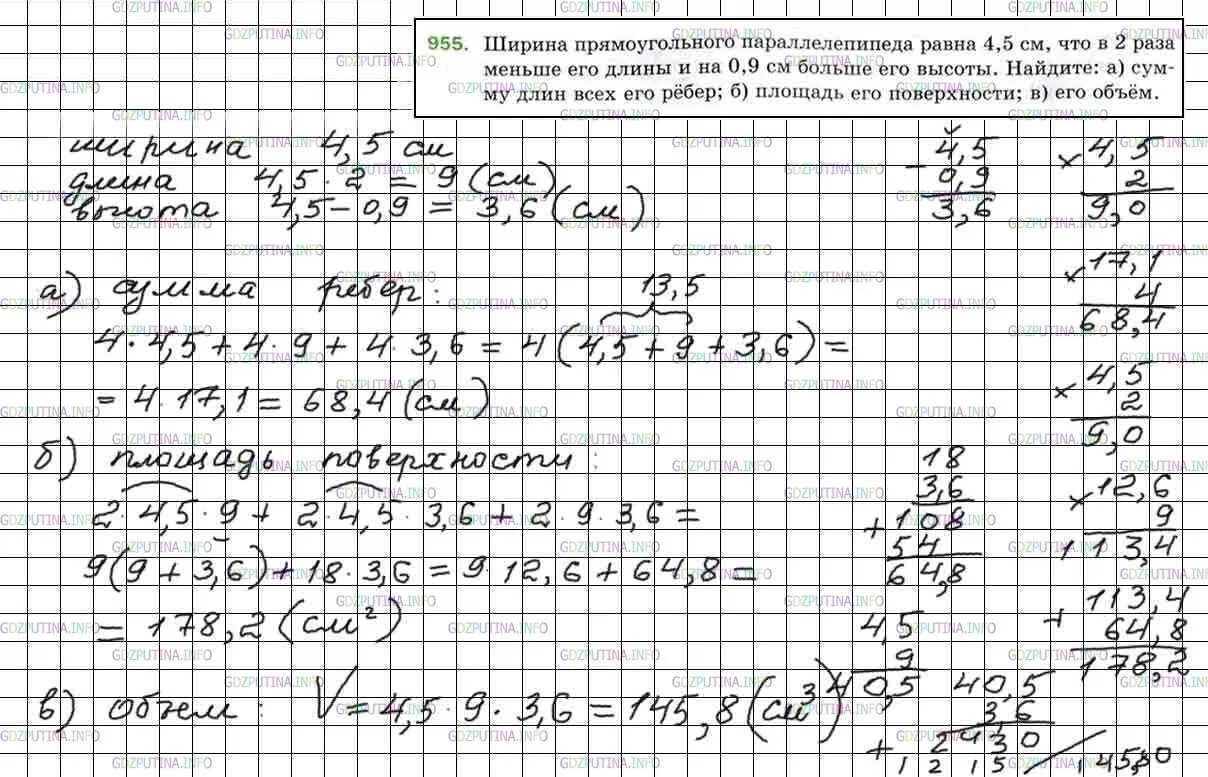 955. Ширина прямоугольного параллелепипеда равна 4,5 см, что в 2 раза
меньше его длины и на 0,9 см больше его высоты. Найдите: а) сум-
му длин всех его рёбер; б) площадь его поверхности; в) его объём.
ширина 4,5 см
длина 4,5 · 2 = 9 (см)
высота 4,5 – 0,9 = 3,6 (см)
– 4,5
0,9
3,6
× 4,5
2
9,0
а) сумма ребер:
13,5
4 · 4,5 + 4 · 9 + 4 · 3,6 = 4 (4,5 + 9 + 3,6) =
= 4 · 17,1 = 68,4 (см)
× 17,1
4
68,4
× 4,5
2
9,0
б) площадь поверхности:
2 · 4,5 · 9 + 2 · 4,5 · 3,6 + 2 · 9 · 3,6 =
9 (9 + 3,6) + 18 · 3,6 = 9 · 12,6 + 64,8 =
= 178,2 (см²)
18
3,6
+ 108
54
64,8
× 12,6
9
113,4
+ 113,4
64,8
178,2
в) объем: V = 4,5 · 9 · 3,6 = 145,8 (см³)
4,5
9
40,5
40,5
3,6
+ 2430
1215
145,80
GDZPUTINA.INFO